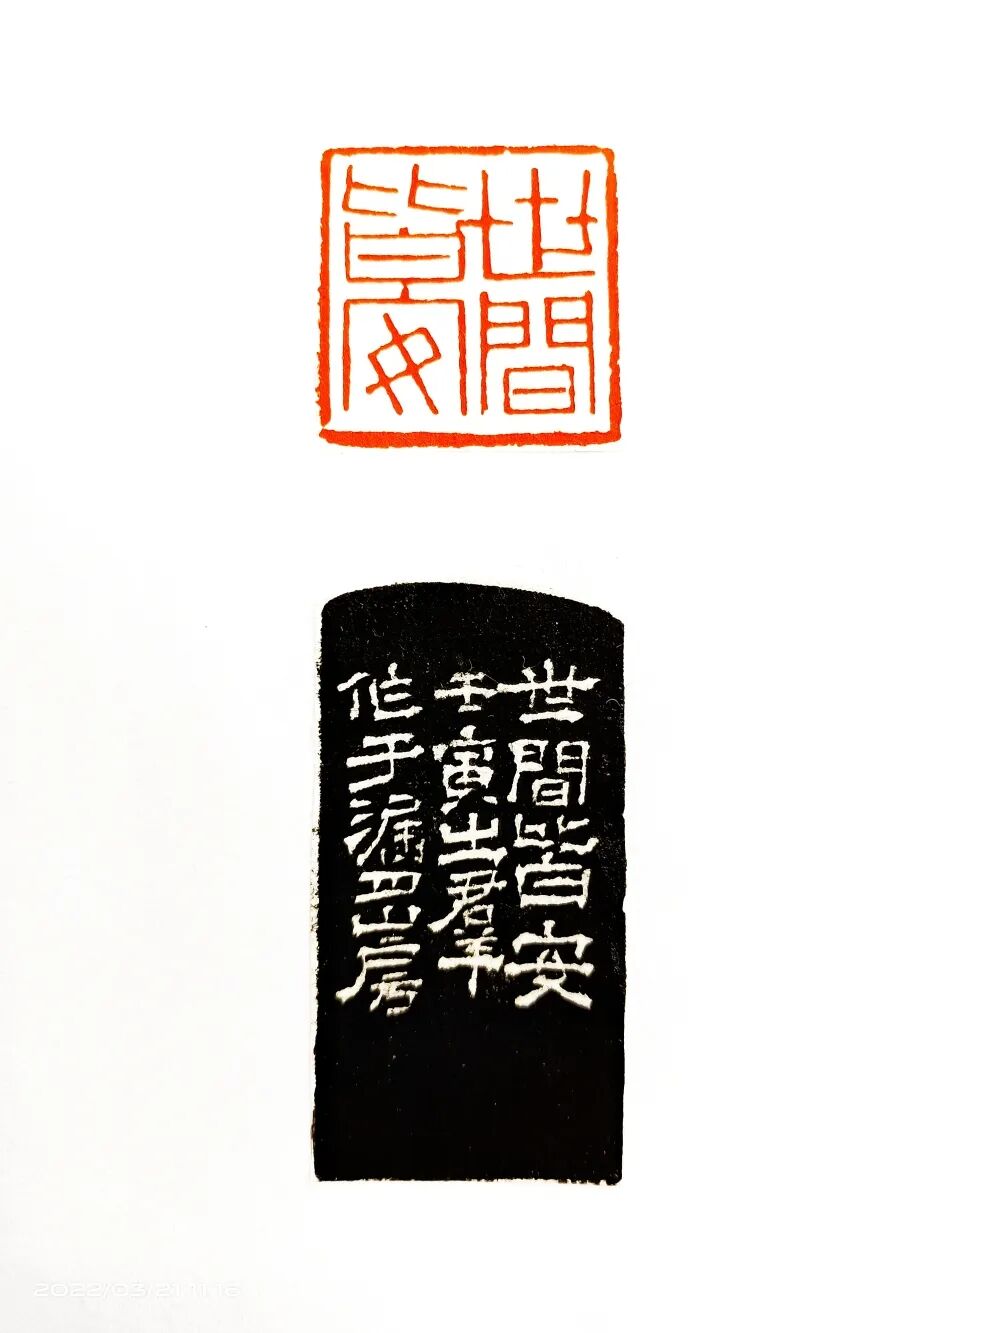 世間皆安
世間皆安
壬寅羣
作于漏山房
2022/03/21 11:16